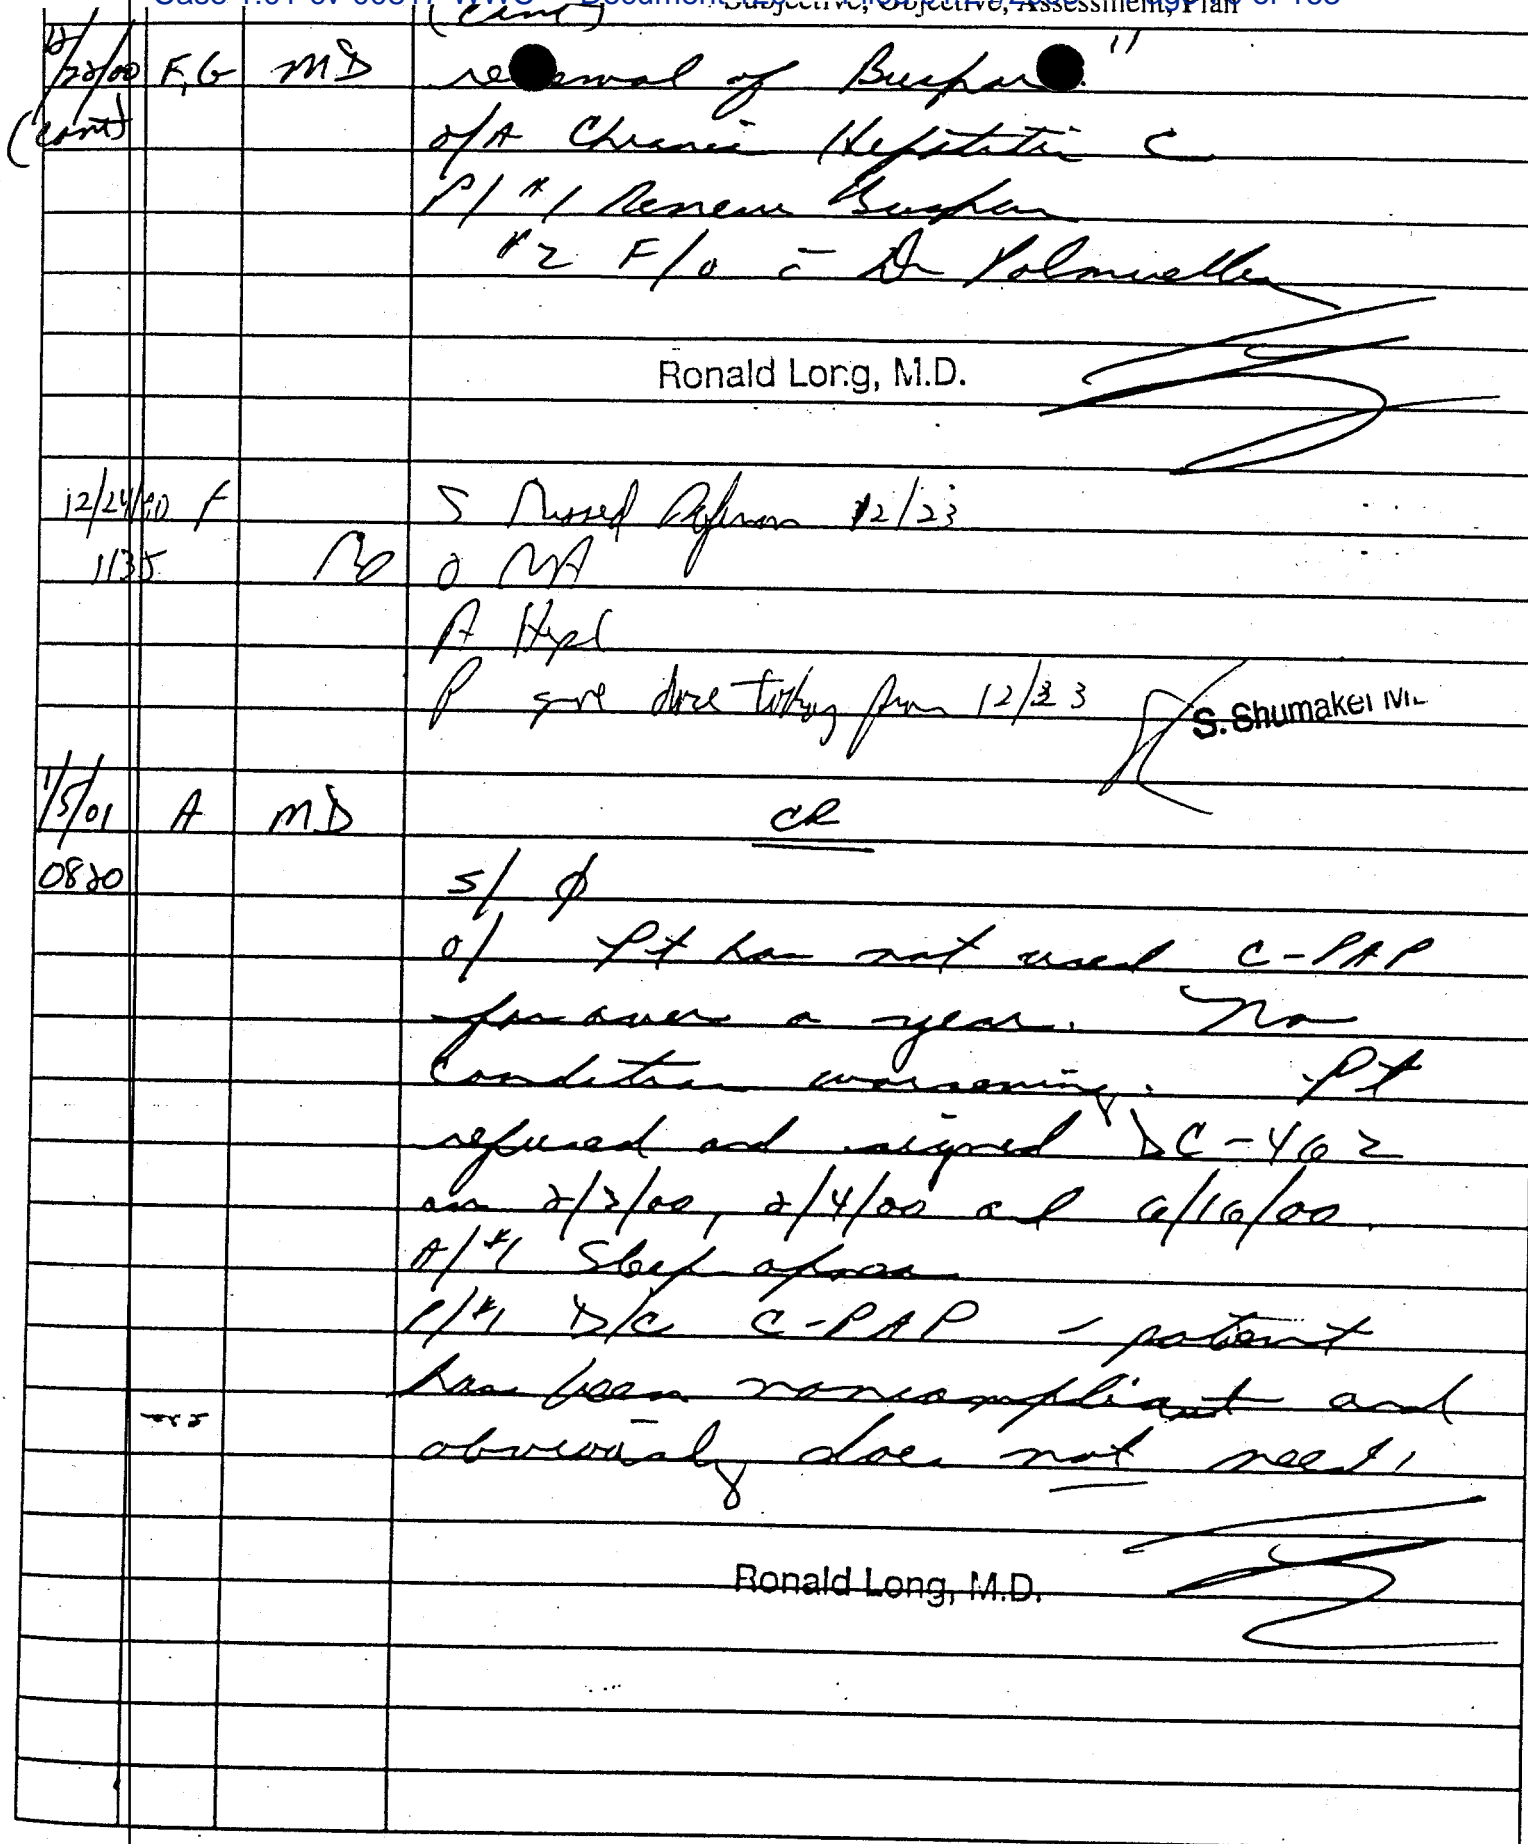 (cont) Subjective, Objective, Assessment, Plan
12/22/00 F,G MD renewal of Buspar."
(cont) O/A Chronic Hepatitis C
P/ #1 Renew Buspar
#2 F/U c Dr
Ronald Long, M.D.
12/24/00 F S Missed 12/23
1135 O NA
A HepC
P give dose today from 12/23 S. Shumaker
1/5/01 A MD CR
0820 S/ ϕ
O/ Pt has not used C-PAP
for over a year. No
condition worsening. Pt
refused and signed DC-462
on 2/3/00, 2/4/00 and 6/16/00.
A/ #1 Sleep apnea
P/ #1 D/C C-PAP - patient
has been noncompliant and
obviously does not need!
Ronald Long, M.D.